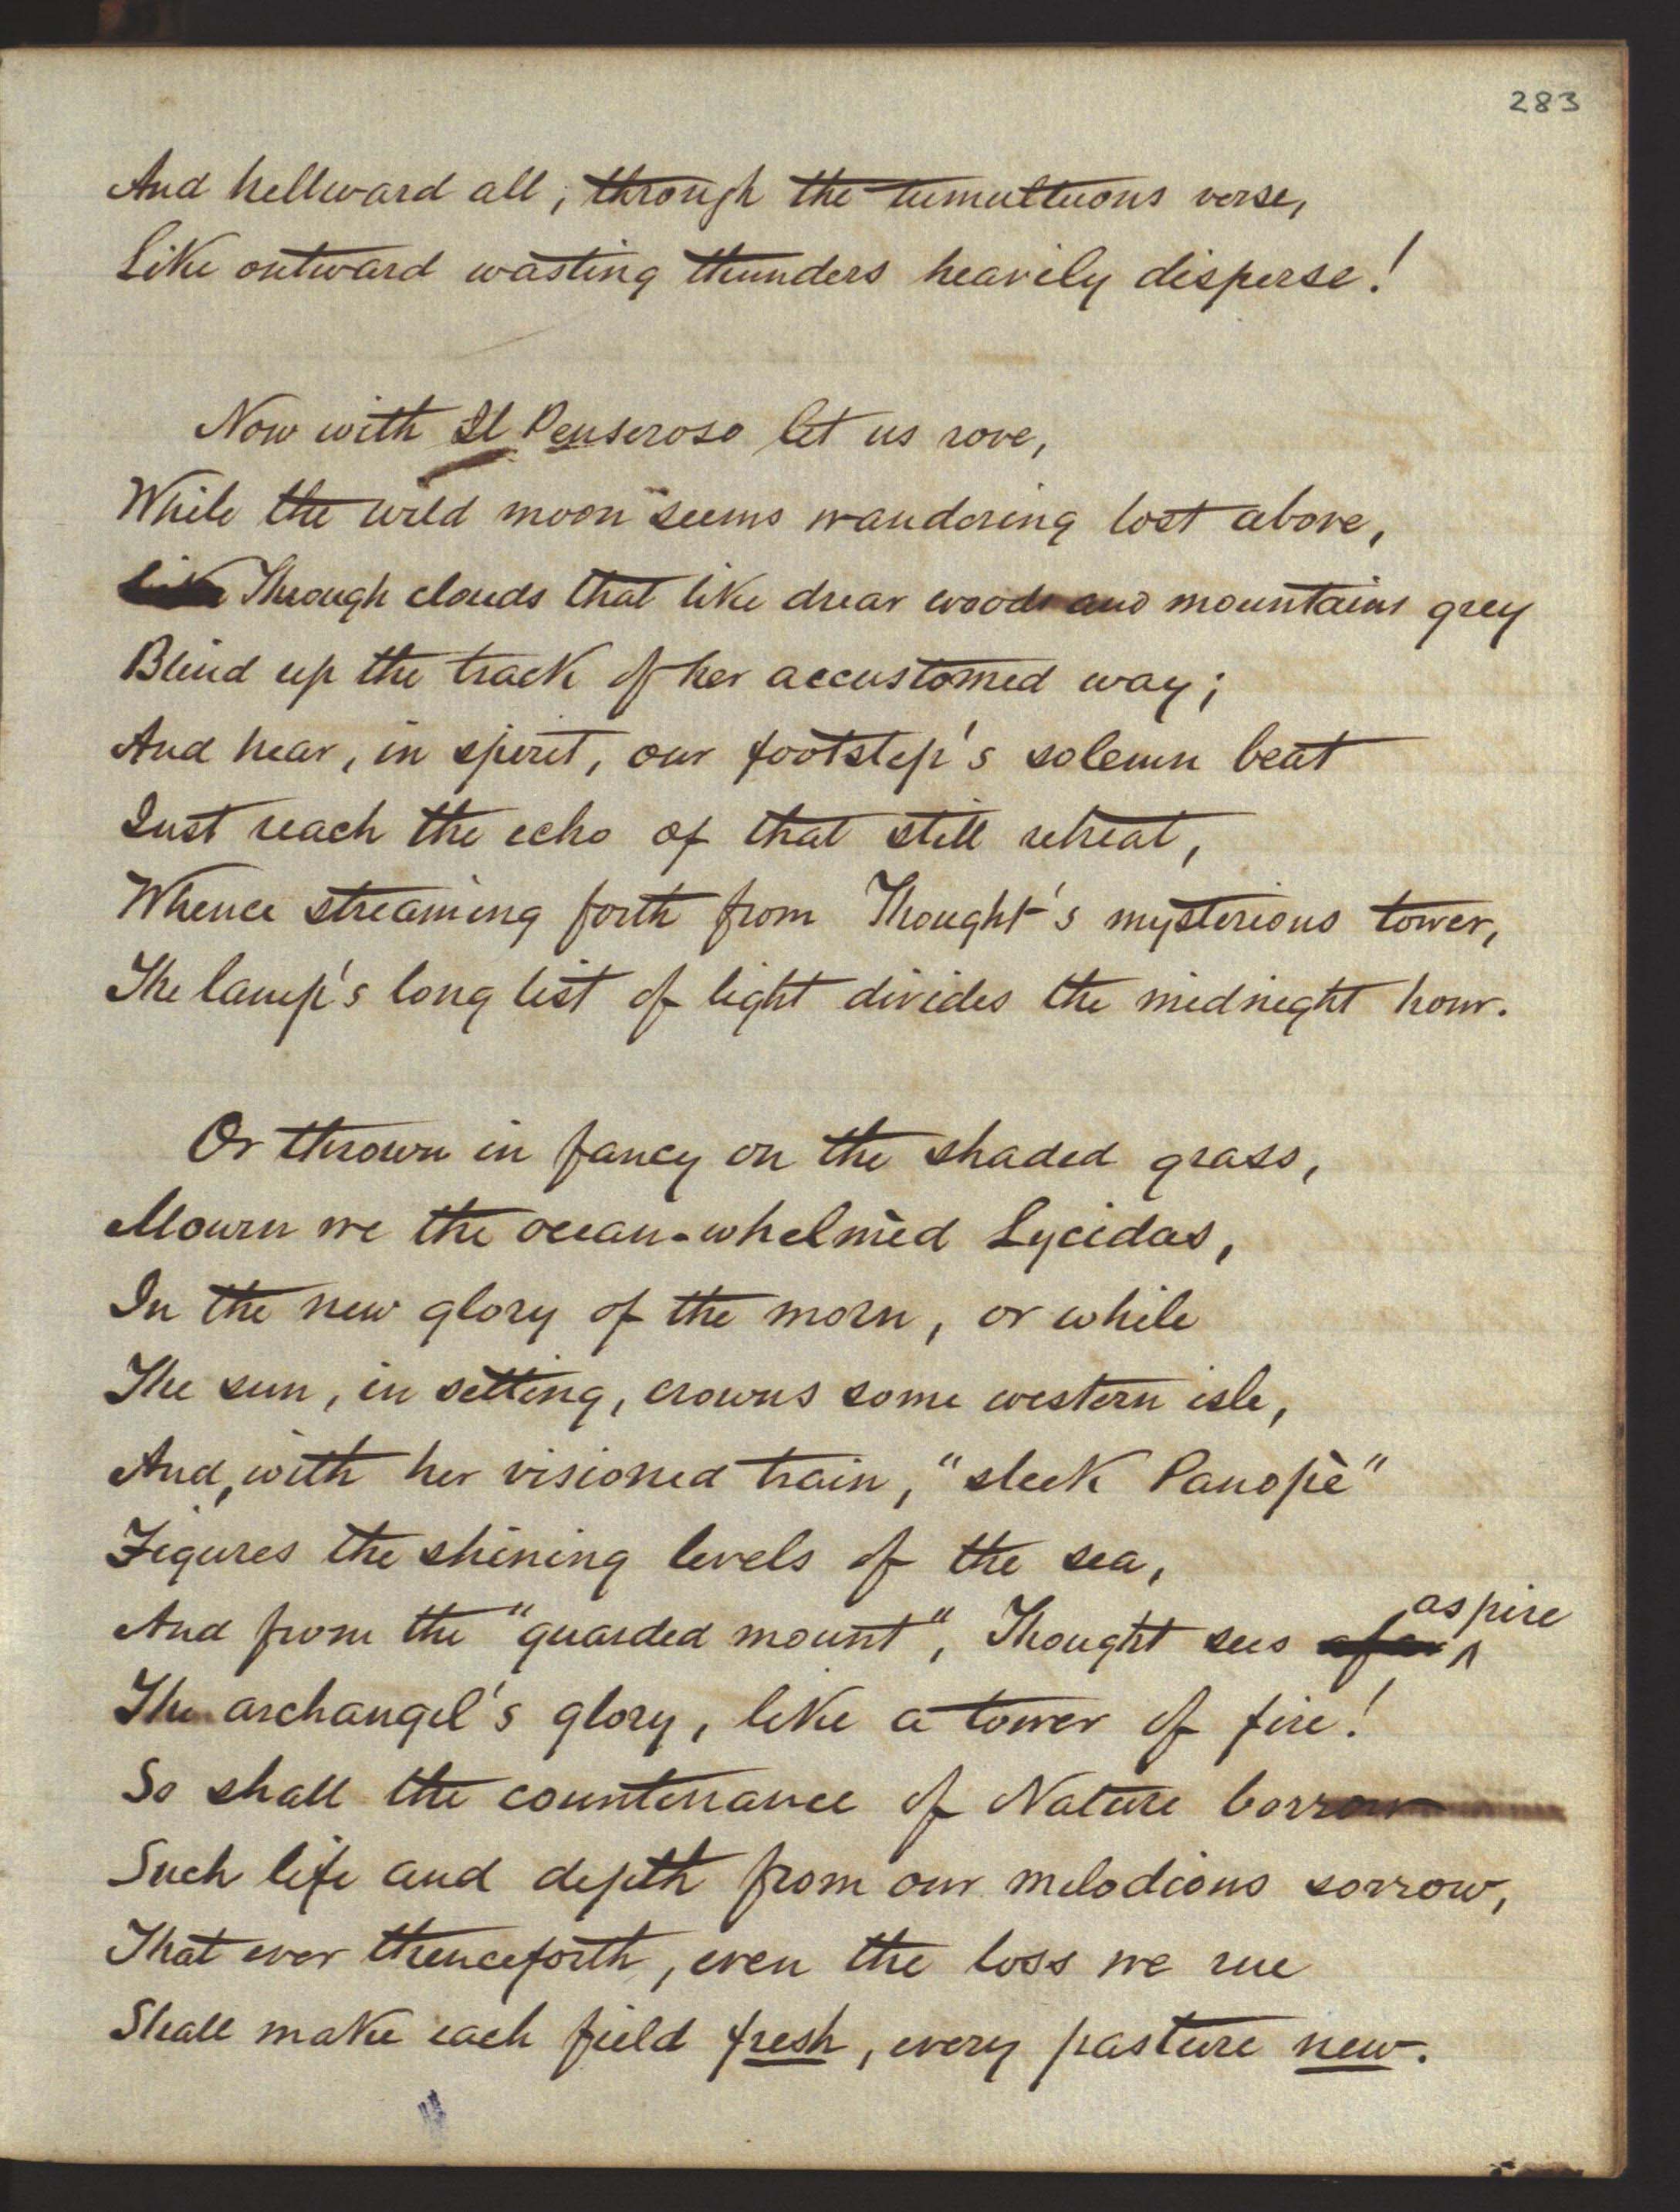 283
And hellward all, through the tumultuous verse,
Like outward wasting thunders heavily disperse!
Now with Il Penseroso let us rove,
While the wild moon seems wandering lost above,
Like Through clouds that like drear woods and mountains grey
Blind up the track of her accustomed way;
And hear, in spirit, our footstep's solemn beat
Just reach the echo of that still retreat,
Whence streaming forth from Thought's mysterious tower,
The lamp's long list of light divides the midnight hour.
Or thrown in fancy on the shaded grass,
Mourn we the ocean-whelmèd Lycidas,
In the new glory of the morn, or while
The sun, in setting, crowns some western isle,
And, with her visioned train, "sleek Panopè"
Figures the shining levels of the sea,
And from the "guarded mount", Thought sees afar aspire
The archangel's glory, like a tower of fire!
So shall the countenance of Nature borrow
Such life and depth from our melodious sorrow,
That ever thenceforth, even the loss we rue
Shall make each field fresh, every pasture new.